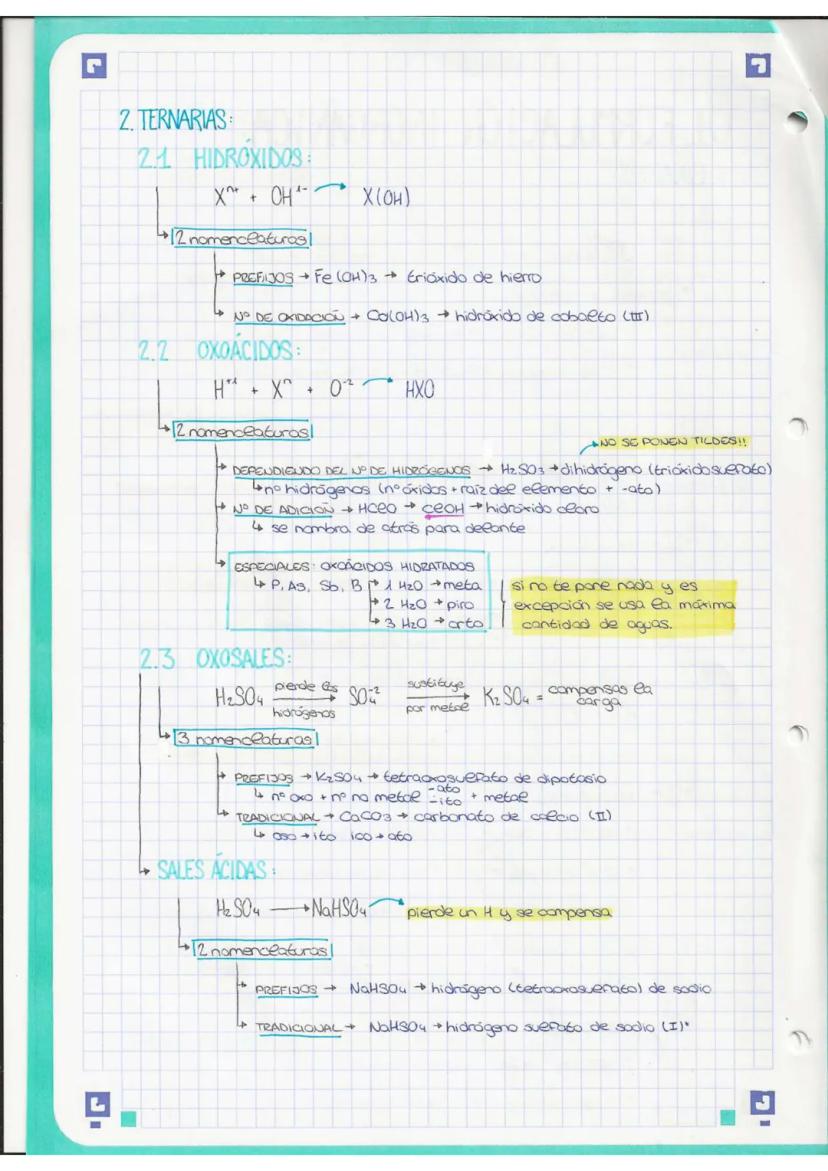 2. TERNARIAS:
2.1 HIDRÓXIDOS:
Xⁿ⁺ + OH¹⁻ → X(OH)
2 nomenclaturas
PREFIJOS → Fe(OH)₃ → trióxido de hierro
Nº DE OXIDACIÓN → Co(OH)₃ → hidróxido de cobalto (III)
2.2 OXOÁCIDOS:
H⁺¹ + Xⁿ + O⁻² → HXO
2 nomenclaturas
NO SE PONEN TILDES!!
DEPENDIENDO DEL Nº DE HIDRÓGENOS → H₂SO₃ → dihidrógeno (trióxidosulfato)
↳ nº hidrógenos (nº óxidos + raíz del elemento + -ato)
Nº DE ADICIÓN → HClO → ClOH → hidróxido cloro
↳ se nombra de atrás para delante
ESPECIALES: OXOÁCIDOS HIDRATADOS
↳ P, As, Sb, B → 1 H₂O → meta
→ 2 H₂O → piro
→ 3 H₂O → orto
si no te pone nada y es
excepción se usa la máxima
cantidad de aguas.
2.3 OXOSALES:
H₂SO₄ pierde los hidrógenos → SO₄⁻² sustituye por metal → K₂SO₄ = compensas la carga
3 nomenclaturas
PREFIJOS → K₂SO₄ → tetraoxosulfato de dipotasio
↳ nº oxo + nº no metal -ato -ito + metal
TRADICIONAL → CaCO₃ → carbonato de calcio (II)
↳ oso → ito ico → ato
SALES ÁCIDAS:
H₂SO₄ → NaHSO₄ → pierde un H y se compensa
2 nomenclaturas
PREFIJOS → NaHSO₄ → hidrógeno (tetraoxosulfato) de sodio
TRADICIONAL → NaHSO₄ → hidrógeno sulfato de sodio (I)*